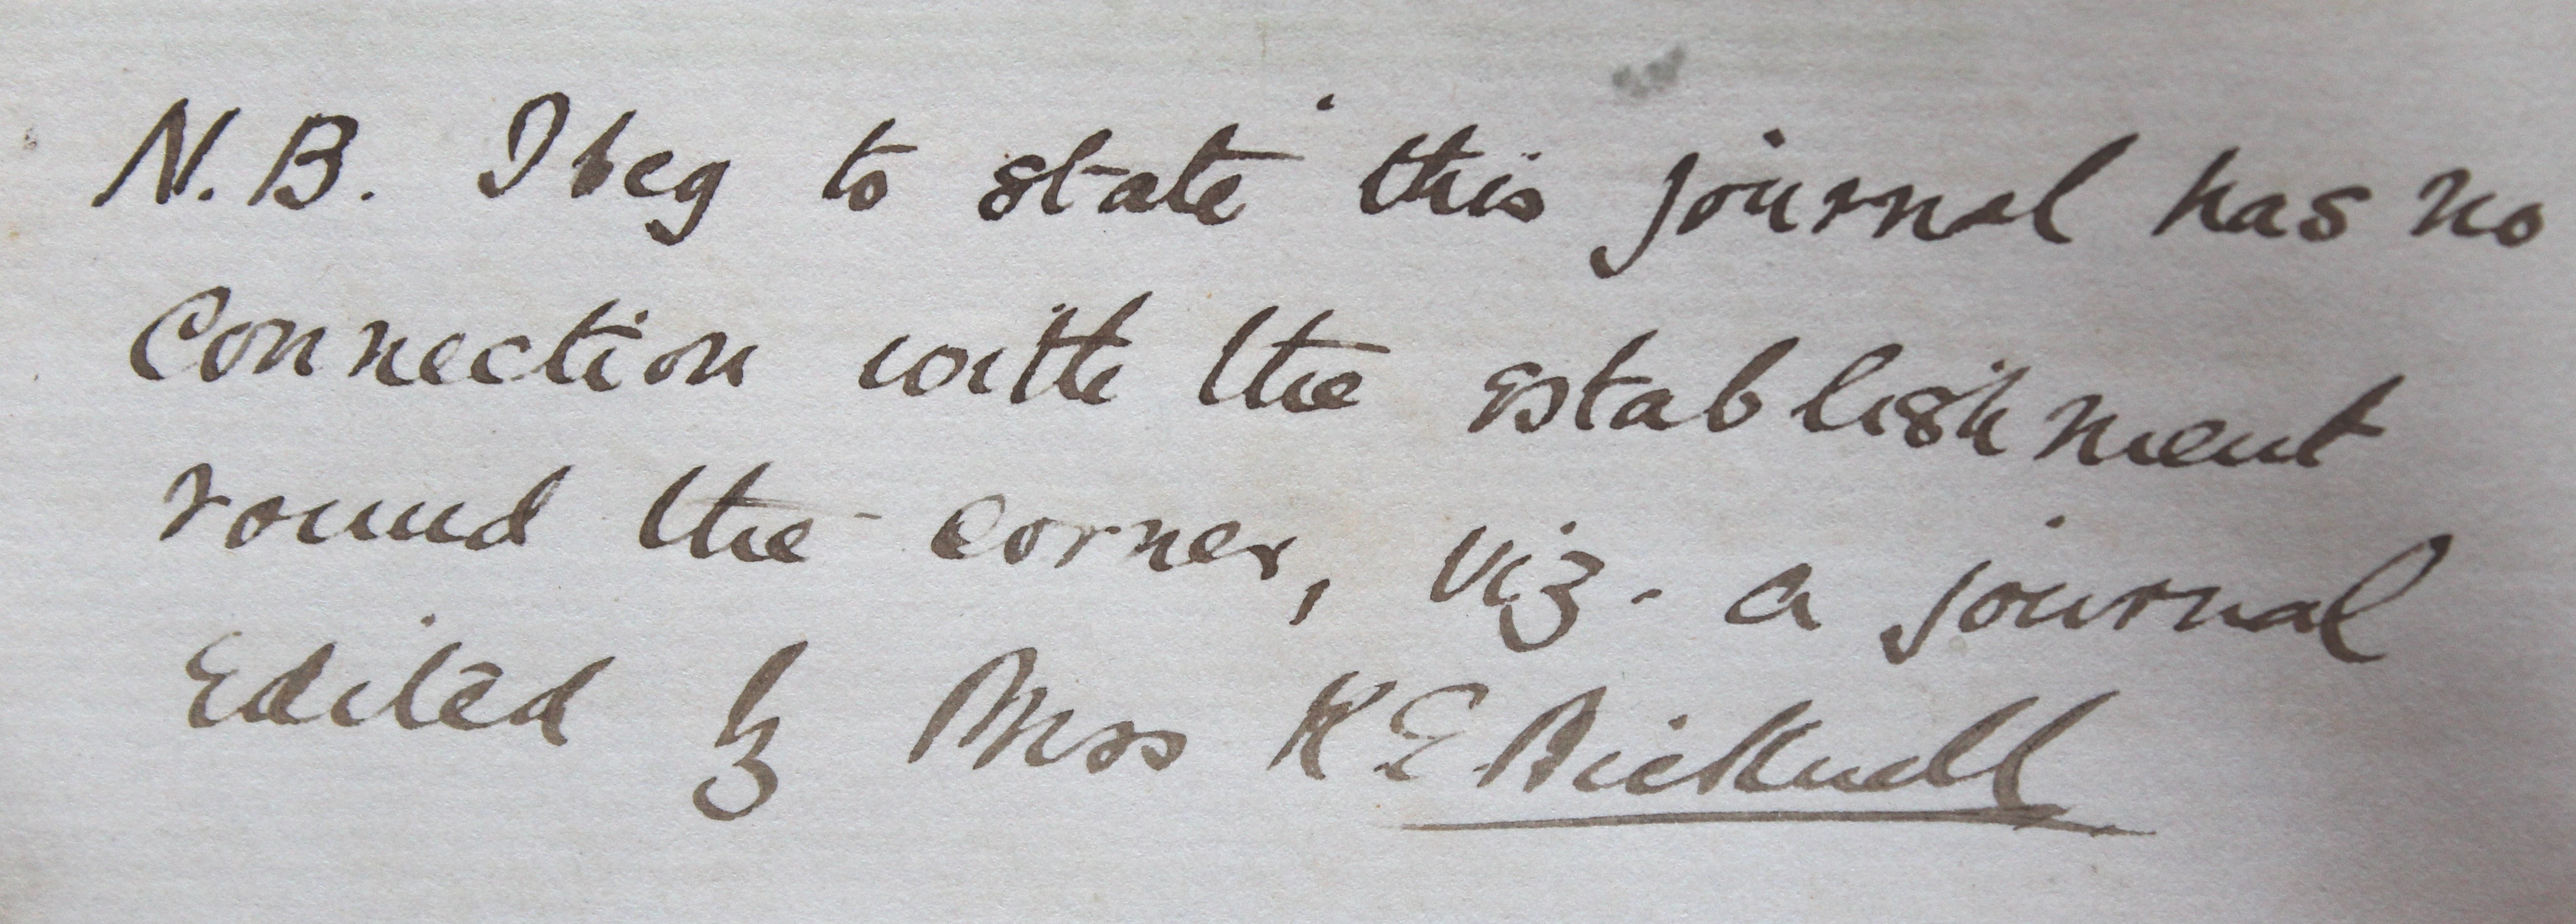 N.B. I beg to state this journal has no
Connection with the establishment
round the corner, viz. a journal
Edited by Miss K. E. Bicknell